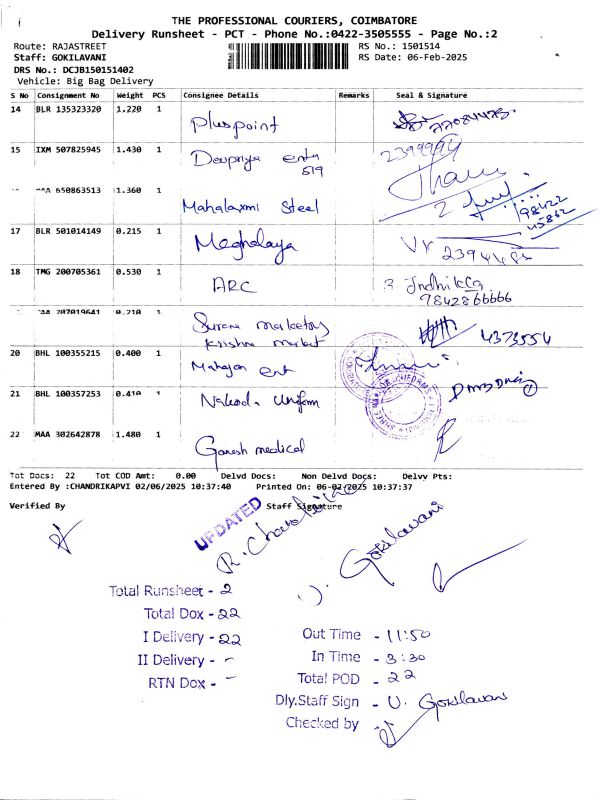 THE PROFESSIONAL COURIERS, COIMBATORE
Delivery Runsheet - PCT - Phone No.:0422-3505555 - Page No.:2
Route: RAJASTREET
RS No.: 1501514
Staff: GOKILAVANI
RS Date: 06-Feb-2025
DRS No.: DCJB150151402
Vehicle: Big Bag Delivery
S No Consignment No Weight PCS Consignee Details Remarks Seal & Signature
14 BLR 135323320 1.220 1 Pluspoint
15 IXM 507825945 1.430 1 Devpriya 2399994
519
MAA 650863513 1.360 1 Mahalaxmi Steel 98422
45862
17 BLR 501014149 0.215 1 Meghalaya
18 TMG 200705361 0.530 1 ARC
9842866666
787019641 0.210 1 Surana marketing 4373554
Krishna market
20 BHL 100355215 0.400 1 Mahajan Ent
21 BHL 100357253 0.410 1 Nakoda Uniform
22 MAA 302642878 1.480 1 Ganesh medical
Tot Docs: 22 Tot COD Amt: 0.00 Delvd Docs: Non Delvd Docs: Delvy Pts:
Entered By :CHANDRIKAPVI 02/06/2025 10:37:40 Printed On: 06-02-2025 10:37:37
Verified By Staff Signature
UPDATED
Gokilavani
Total Runsheet - 2
Total Dox - 22
I Delivery - 22
II Delivery - -
RTN Dox - -
Out Time - 11:50
In Time - 3:30
Total POD - 22
Dly.Staff Sign - U. Gokilavani
Checked by